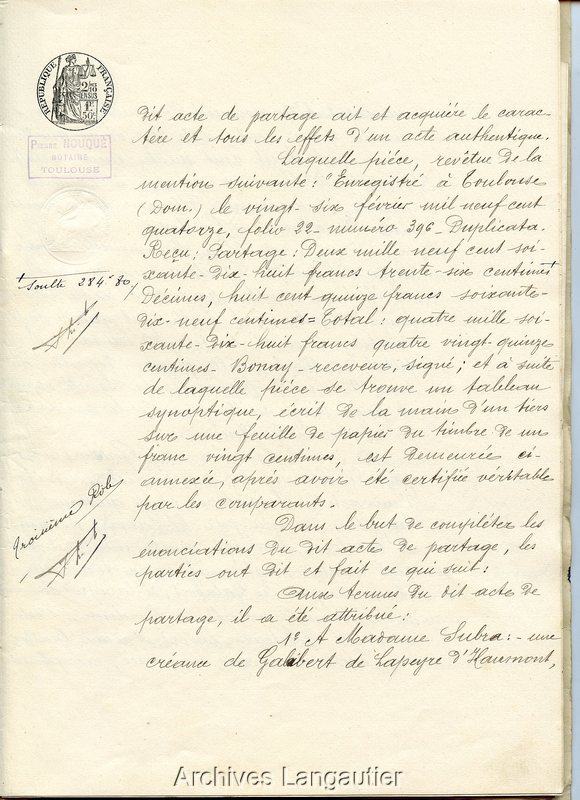 RÉPUBLIQUE FRANÇAISE
2/10
EN SUS
1F.
50c.
PIERRE NOUQUÉ
NOTAIRE
TOULOUSE
dit acte de partage ait et acquière le carac-
tère et tous les effets d'un acte authentique.
Laquelle pièce, revêtue de la
mention suivante: "Enregistré à Toulouse
(Dom.) le vingt-six février mil neuf cent
quatorze, folio 22 numéro 396 - Duplicata.
Reçu: Partage: Deux mille neuf cent soi-
xante-dix-huit francs trente-six centimes
Soulte 284f 80
Décimes, huit cent quinze francs soixante-
dix-neuf centimes = Total: quatre mille soi-
xante-dix-huit francs quatre vingt-quinze
centimes - Bonay - receveur, signé; et à suite
de laquelle pièce se trouve un tableau
synoptique, écrit de la main d'un tiers
sur une feuille de papier du timbre de un
franc vingt centimes, est demeurée ci-
annexée, après avoir été certifiée véritable
par les comparants.
troisième Rôle
Dans le but de compléter les
énonciations du dit acte de partage, les
parties ont dit et fait ce qui suit:
Aux termes du dit acte de
partage, il a été attribué:
1º A Madame Subra: - une
créance de Galibert de Lapeyre d'Haumont,
Archives Langautier